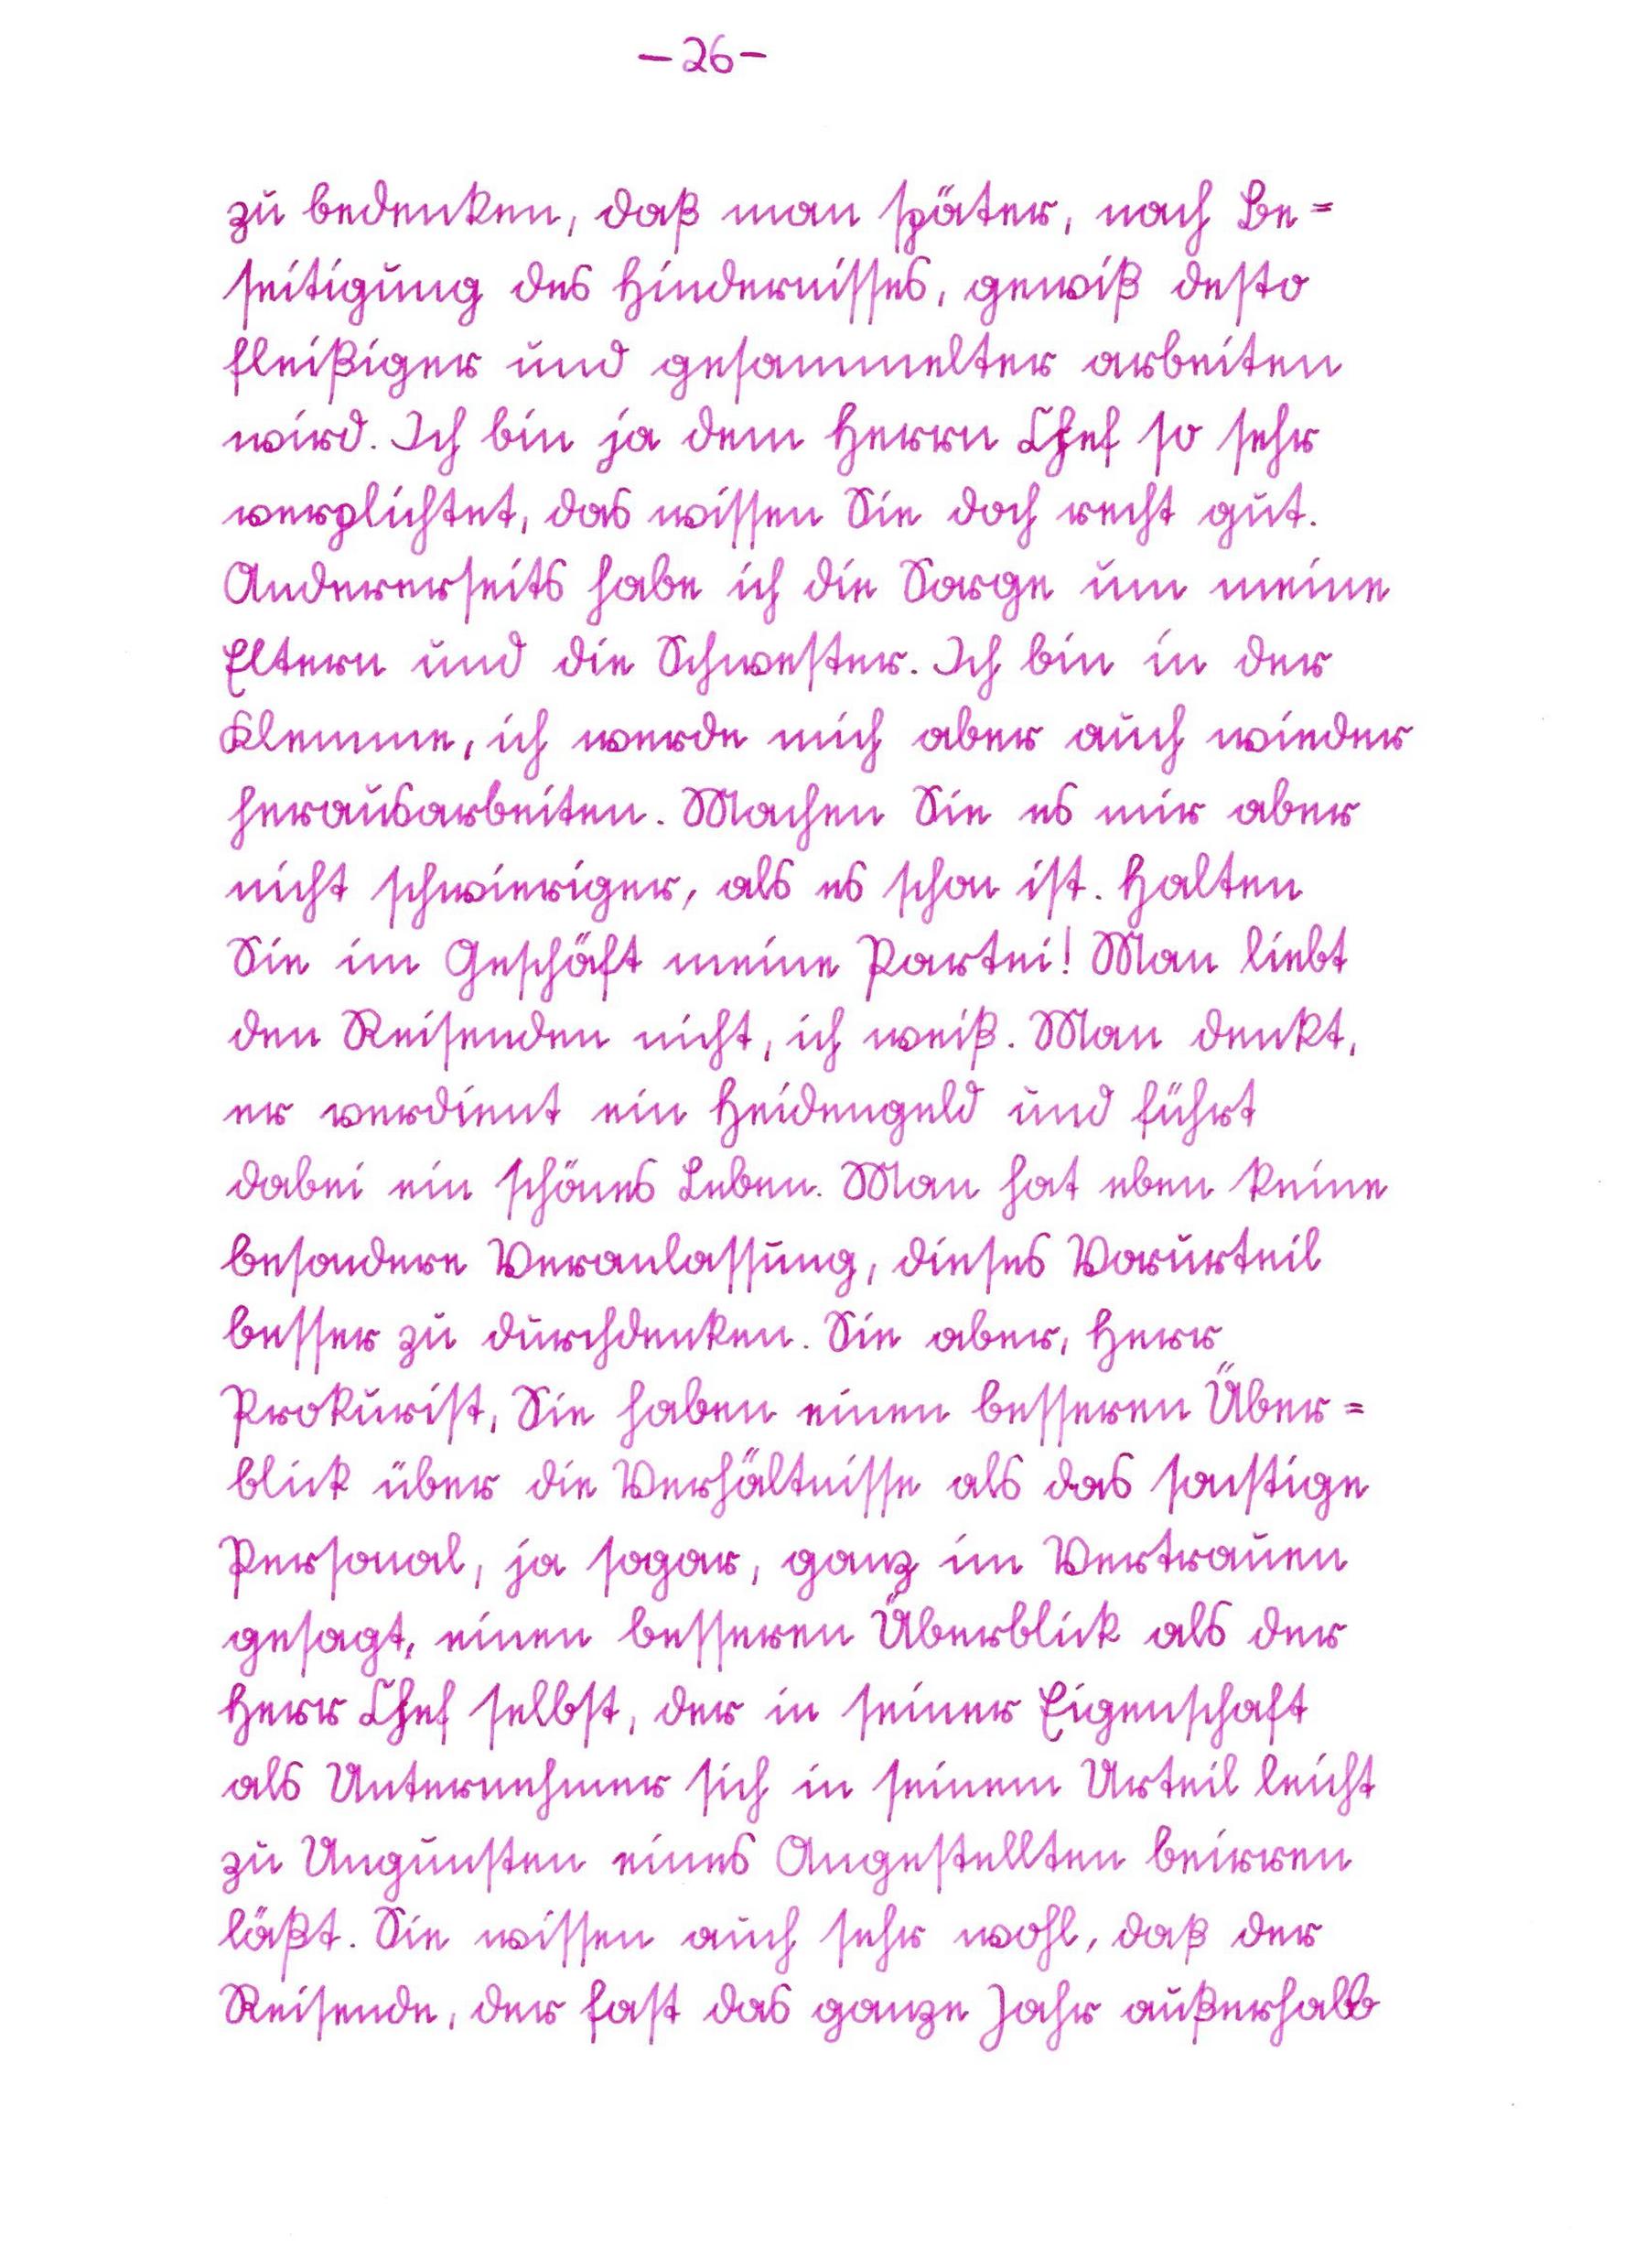 -26-
zu bedenken, daß man später, nach Be=
seitigung des Hindernisses, gewiß desto
fleißiger und gesammelter arbeiten
wird. Ich bin ja dem Herrn Chef so sehr
verplichtet, das wissen Sie doch recht gut.
Andererseits habe ich die Sorge um meine
Eltern und die Schwester. Ich bin in der
Klemme, ich werde mich aber auch wieder
herausarbeiten. Machen Sie es mir aber
nicht schwieriger, als es schon ist. Halten
Sie im Geschäft meine Partei! Man liebt
den Reisenden nicht, ich weiß. Man denkt,
er verdient ein Heidengeld und führt
dabei ein schönes Leben. Man hat eben keine
besondere Veranlassung, dieses Vorurteil
besser zu durchdenken. Sie aber, Herr
Prokurist, Sie haben einen besseren Über=
blick über die Verhältnisse als das sonstige
Personal, ja sogar, ganz im Vertrauen
gesagt, einen besseren Überblick als der
Herr Chef selbst, der in seiner Eigenschaft
als Unternehmer sich in seinem Urteil leicht
zu Ungunsten eines Angestellten beirren
läßt. Sie wissen auch sehr wohl, daß der
Reisende, der fast das ganze Jahr außerhalb